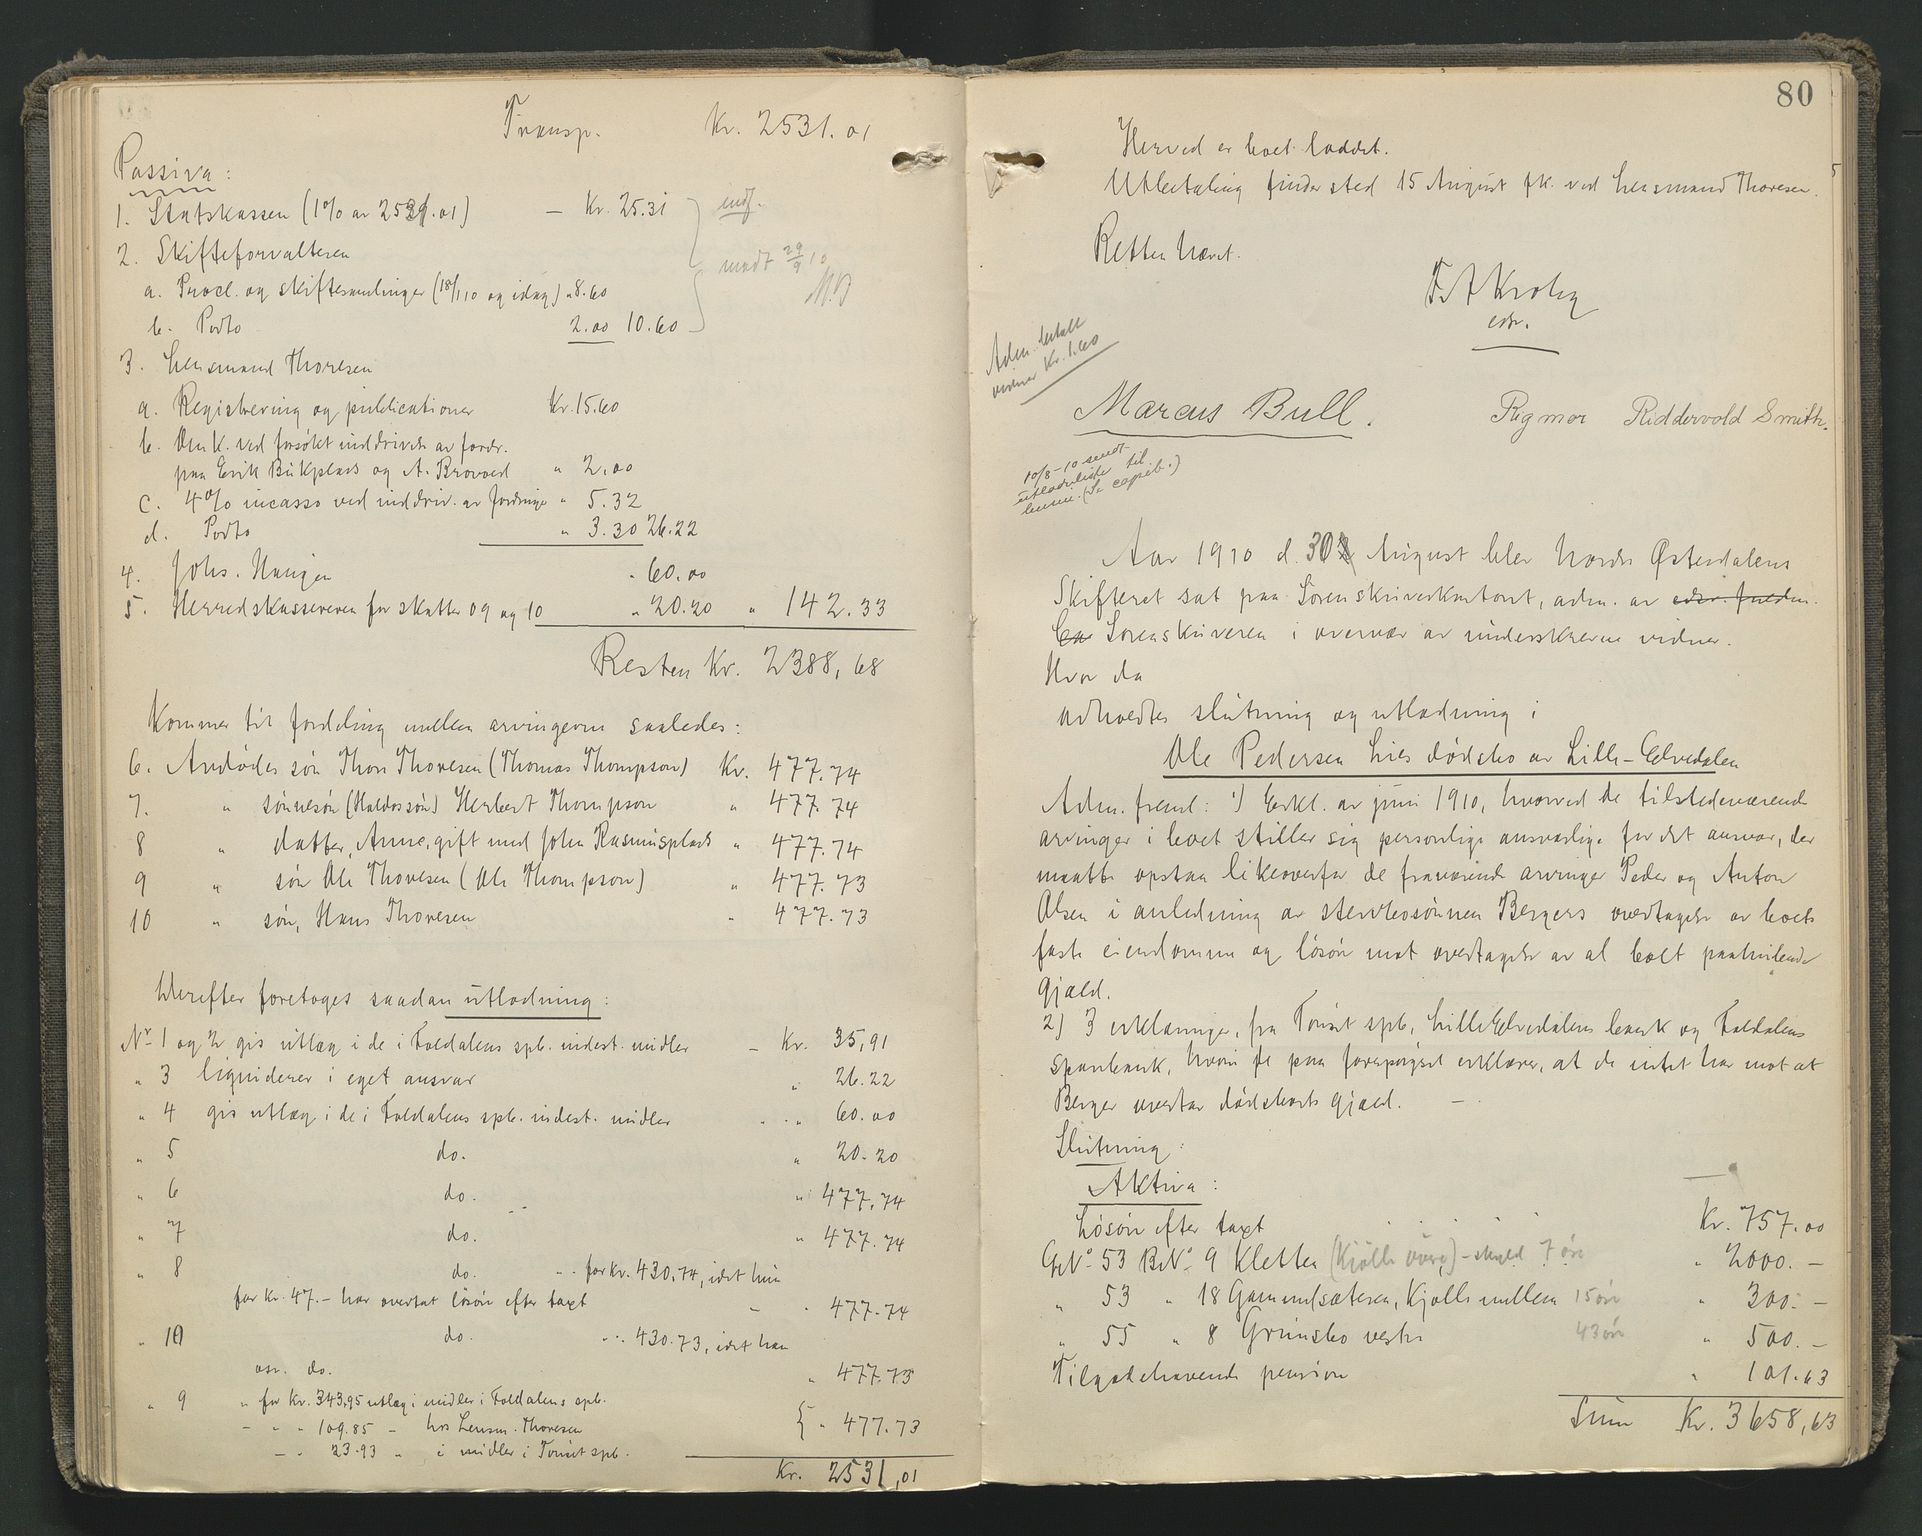 Transp. Kr. 2531.01
Passiva:
1. Statskassen (1% av 2531.01) — Kr. 25.31
2. Skifteforvalteren
a. Procl. og skiftesamlinger (18/1 10 og idag) " 8.60
b. Porto 2.00 10.60
3. Lensmand Thoresen
a. Registrering og publicationer Kr. 15.60
b. Omk. ved forsøkt inddrivelse av fordr.
paa Erik Bukplads og A. Brovold " 2.00
c. 4% incasso ved inddriv. av fordringer " 5.32
d. Porto " 3.30 26.22
4. Johs. Haugen " 60.00
5. Herredskassereren for skatter 09 og 10 " 20.20 " 142.33
Resten Kr. 2388,68
Kommer til fordeling mellem arvingerne saaledes:
6. Avdødes søn Thor Thoresen (Thomas Thompson) Kr. 477.74
7. " sønnesøn (Haldossøn) Herbert Thompson " 477.74
8 " datter, Anne, gift med John Rasmusplads " 477.74
9 " søn Ole Thoresen (Ole Thompson) " 477.73
10 " søn, Hans Thoresen " 477.73
Derefter foretoges saadan utlodning:
No 1 og 2 gis utlæg i de i Foldalens spb. indest. midler — Kr. 35,91
" 3 liquiderer i eget ansvar " 26.22
" 4 gis utlæg i de i Foldalens spb. indest. midler " 60.00
" 5 do. " 20.20
" 6 do. " 477.74
" 7 do. " 477.74
" 8 do. for kr. 430,74, idet hun
for kr. 47.- har overtat løsøre efter taxt " 477.74
" 10 do. " 430.73, idet han
do. " 477.73
" 9 " for Kr. 343,95 utlæg i midler i Foldalens spb.
- " " 109.85 - hos Lensm. Thoresen { " 477.73
- " 23.93 " i midler i Tønset spb.
Kr. 2531,01
80
Herved er boet loddet.
Utbetaling finder sted 15 August fk. ved lensmand Thoresen.
Retten hævet.
edsv.
Adm. betalt
vidner Kr. 1.60
Marcus Bull. Rigmor Riddervold Smith.
10/8-10 sendt
utlodnliste til
lensm. (Se copieb.)
Aar 1910 d. 30 August blev Nordre Østerdalens
Skifteret sat paa Sorenskriverkontoret, adm. av edsv. fuldm.
Sorenskriveren i overvær av underskrevne vidner.
Hvor da
avholdtes slutning og utlodning i
Ole Pedersen Lies dødsbo av Lille-Elvedalen
Adm. freml: 1) Erkl. av juni 1910, hvorved de tilstedeværende
arvinger i boet stiller sig personlige ansvarlige for det ansvar, der
maatte opstaa likeoverfor de fraværende arvinger Peder og Anton
Olsen i anledning av stervbosønnen Bergers overtagelse av boets
faste eiendomme og løsøre mot overtagelse av al boet paahvilende
gjæld.
2) 3 erklæringer, fra Tønset spb, Lille Elvedalens bank og Foldalens
sparebank, hvori de paa forespørgsel erklærer, at de intet har mot at
Berger overtar dødsboets gjæld. —
Slutning:
Aktiva:
Løsøre efter taxt Kr. 757.00
GNo 53 BNo 9 Kletten (Kjølle øvre) - skyld 7 øre " 2000.—
" 53 " 18 Gammelsæteren, Kjølle mellem 15 øre " 300.—
" 55 " 8 Grimsbo vestre 43 øre " 500.—
Tilgodehavende pension " 101.63
Sum Kr. 3658,63